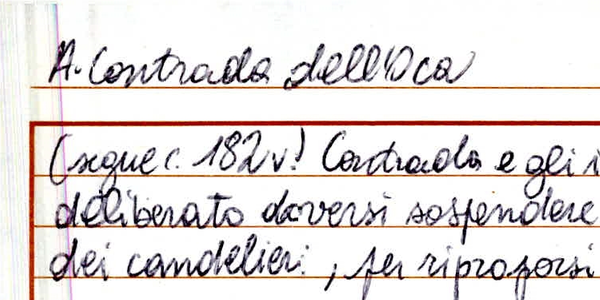 A. Contrada dell'Oca
(segue c. 182v.) Contrada e gli
deliberato doversi sospendere
dei candelieri, per riproporsi